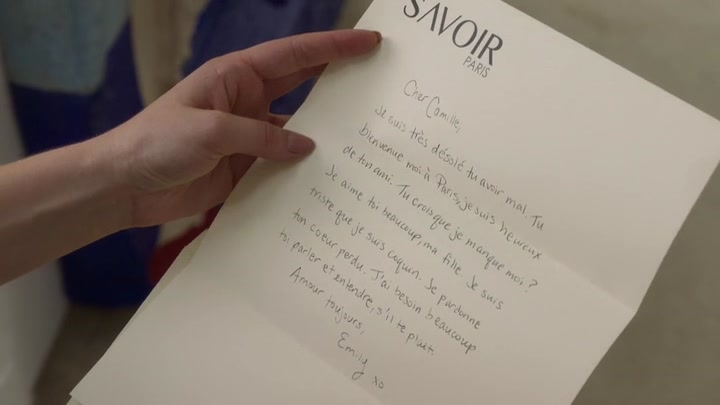 SAVOIR
PARIS
Cher Camille,
Je suis très désolé tu avoir mal. Tu
bienvenue moi à Paris, je suis heureux
de ton ami. Tu crois que je manque moi?
Je aime toi beaucoup, ma fille. Je suis
triste que je suis coquin. Je pardonne
ton coeur perdu. J'ai besoin beaucoup
toi parler et entendre, s'il te plait.
Amour toujours,
Emily xo